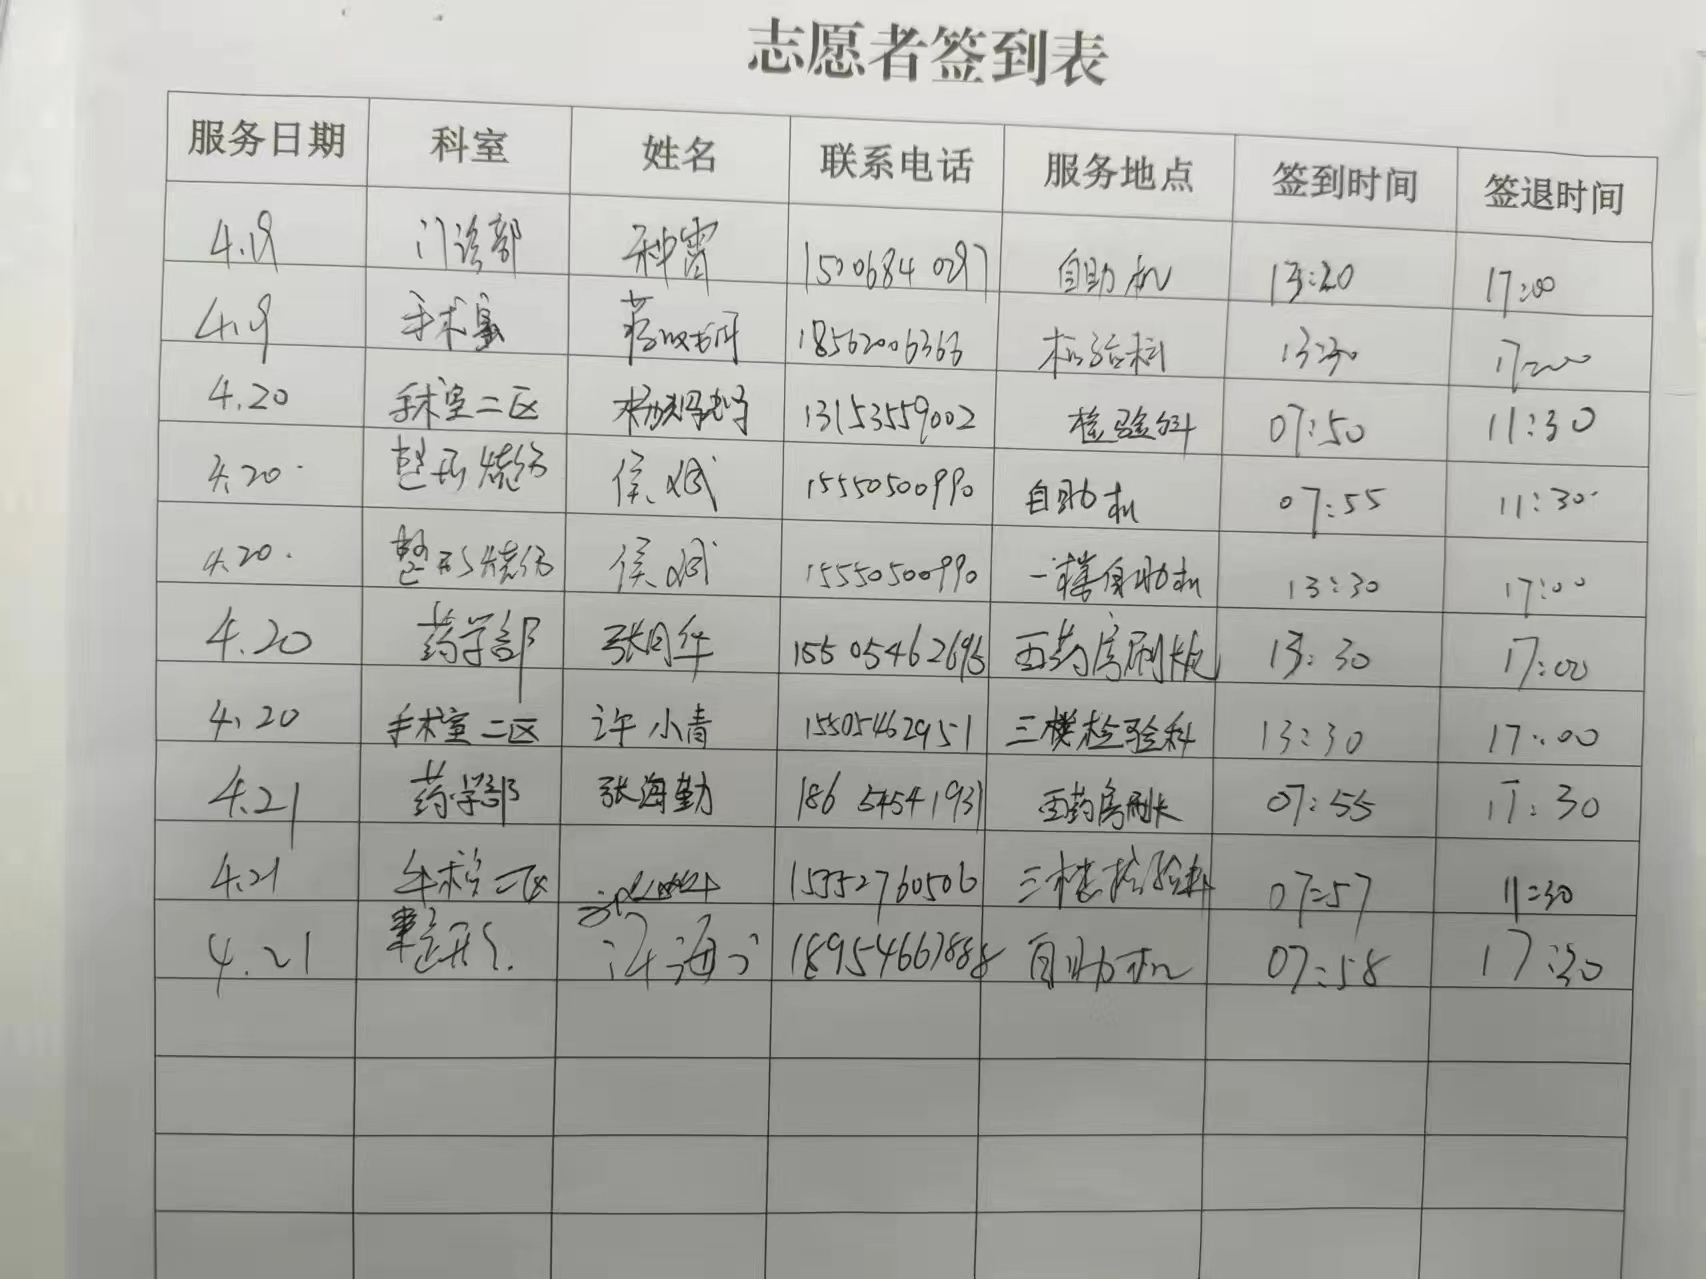 志愿者签到表
服务日期 科室 姓名 联系电话 服务地点 签到时间 签退时间
4.19 门诊部 种霄 15006840297 自助机 13:20 17:00
4.19 手术室 18562006366 检验科 13:30 17:00
4.20 手术室二区 13153559002 检验科 07:50 11:30
4.20. 整形烧伤 侯斌 15550500990 自助机 07:55 11:30.
4.20. 整形烧伤 侯斌 15550500990 一楼自助机 13:30 17:00
4.20 药学部 西药房刷板 13:30 17:00
4.20 手术室二区 许小青 15505462951 三楼检验科 13:30 17:00
4.21 药学部 张海勤 186 54541931 西药房刷卡 07:55 17:30
4.21 手术室二区 15352760506 三楼检验科 07:57 11:30
4.21 整形 18954667888 自助机 07:58 17:30